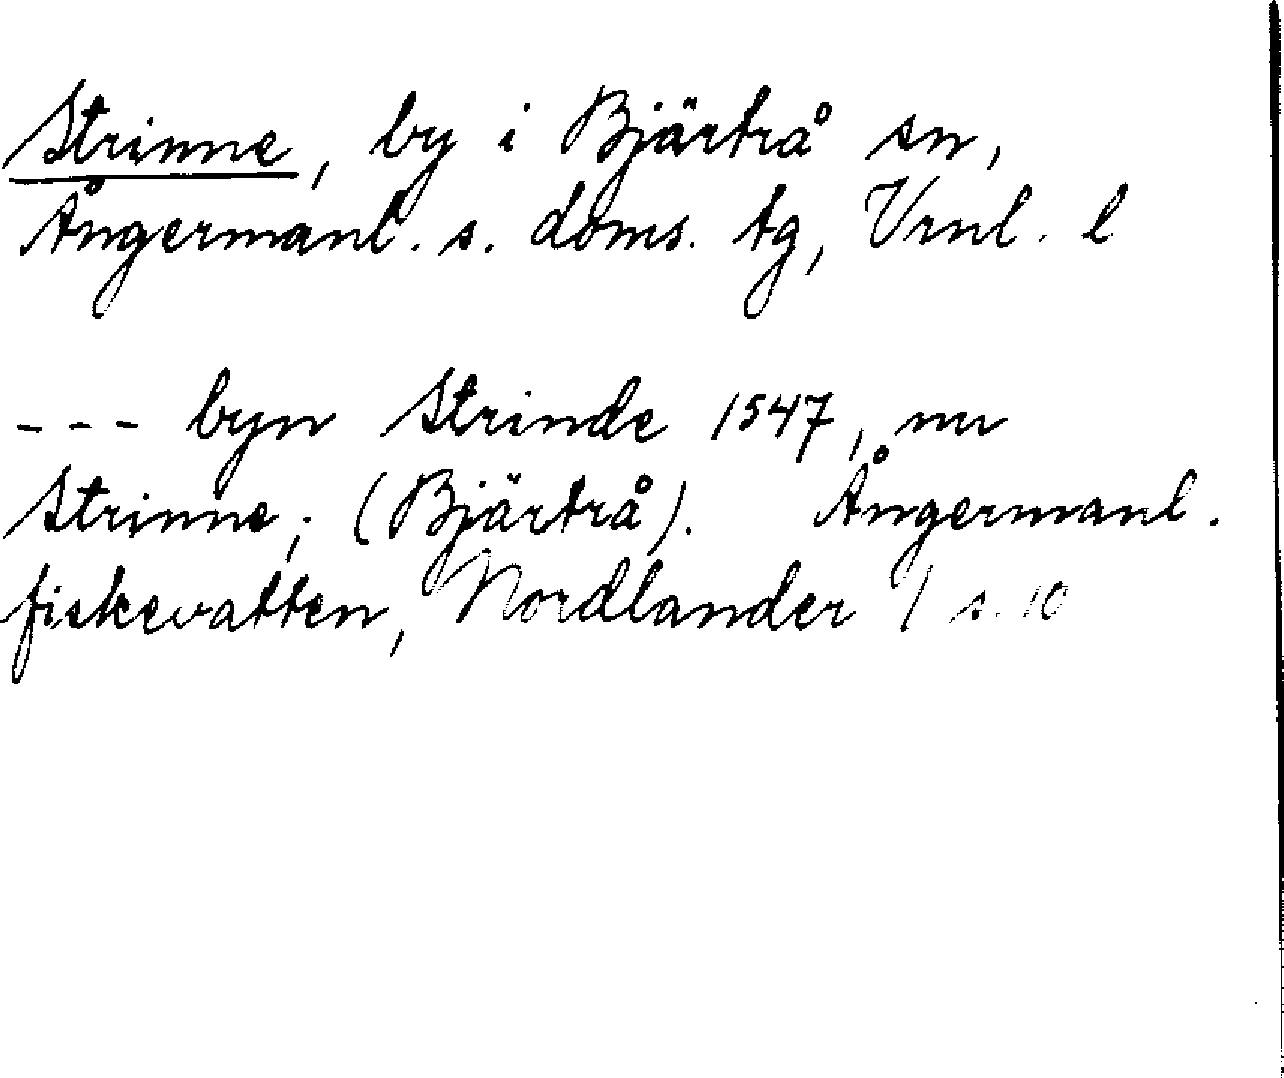 Strinne, by i Bjärtrå sn,
Ångermanl. s. doms. tg, Vrnl. l
--- byn Strinde 1547, nu
Strinne; (Bjärtrå). Ångermanl.
fiskevatten, Nordlander / s. 10